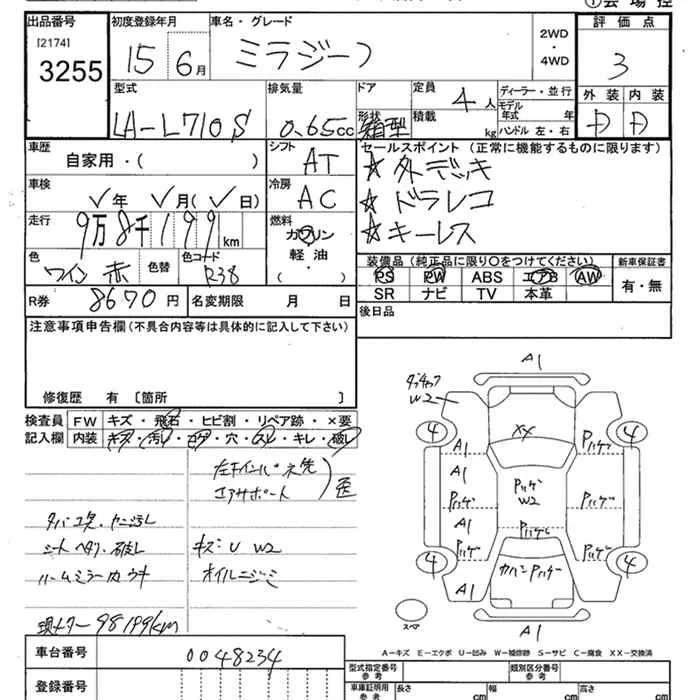 ①会場控
出品番号 初度登録年月 車名・グレード 2WD・4WD 評価点
[2174]
3255 15 6月 ミラジーノ 3
型式 排気量 ドア 定員 ディーラー・並行 外装 内装
LA-L710S 0.65cc 形状 箱型 4人 積載 kg モデル年式 年 ハンドル 左・右 D D
車歴 自家用・( ) シフト AT セールスポイント(正常に機能するものに限ります)
☆外デッキ
車検 年 月( 日) 冷房 AC ☆ドラレコ
走行 9万8千199km 燃料 ガソリン ☆キーレス
色 ワイン赤 色替 色コード R38 軽油・( ) 装備品(純正品に限り〇をつけてください) 新車保証書
PS PW ABS エアB AW 有・無
R券 8670円 名変期限 月 日 SR ナビ TV 本革
注意事項申告欄(不具合内容等は具体的に記入して下さい) 後日品
修復歴 有 [箇所 ]
検査員 FW キズ・飛石・ヒビ割・リペア跡・×要
記入欄 内装 キズ・汚レ・コゲ・穴・スレ・キレ・破レ
左下インパネ先
エアサポート
タバコ臭・ヤニ汚レ
シートヘタリ・破レ キズ:U W2
ルームミラーカウキ オイルニジミ
現メーター98199km
A1
W2
4 A1 XX Pハゲ 4
A1
Pハゲ Pハゲ W2 Pハゲ
A1 Pハゲ
4 Pハゲ Pハゲ 4
A1 カハンPハゲ
スペア A1
A-キズ E-エクボ U-凹み W-補修跡 S-サビ C-腐食 XX-交換済
車台番号 0048234
型式指定番号 類別区分番号
参考 参考
登録番号 車庫証明用 長さ cm 幅 cm 高さ cm
参考